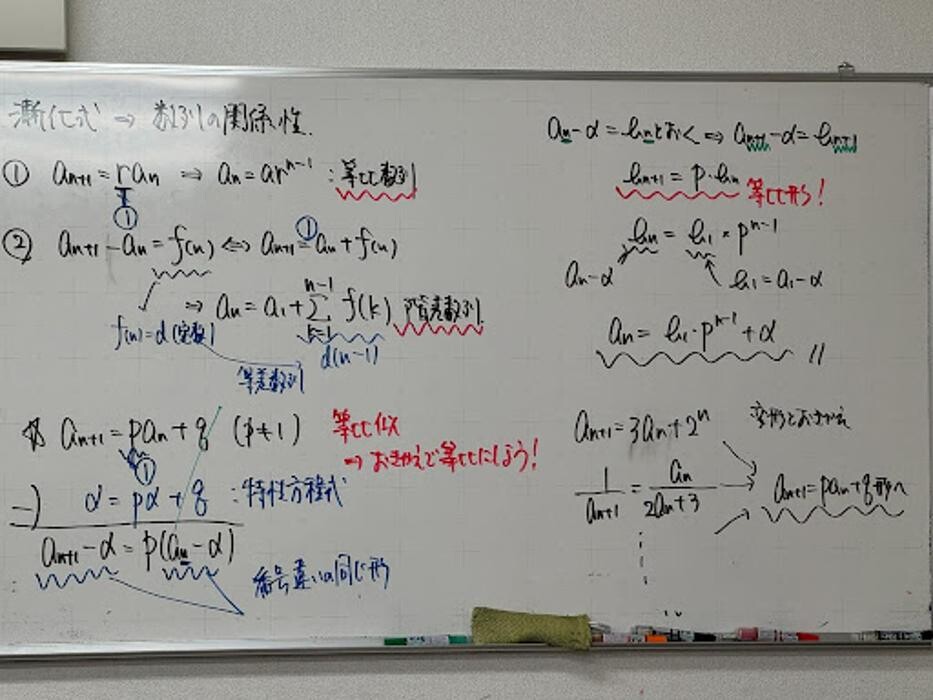 漸化式 ⇒ 数列の関係性.
① an+1 = ran ⇒ an = ar^n-1 : 等比数列
①
② an+1 - an = f(n) ⇔ an+1 = an + f(n)
①
⇒ an = a1 + Σ f(k) 階差数列
n-1
k=1
f(n) = d (定数)
d(n-1)
等差数列
an+1 = pan + q (p≠1) 等比似
⇒ おきかえで等比にしよう!
①
-) α = pα + q : 特性方程式
an+1 - α = p(an - α)
番号違いの同じ形
an - α = bn とおく ⇒ an+1 - α = bn+1
bn+1 = p・bn 等比形!
bn = b1 × p^n-1
an - α b1 = a1 - α
an = b1・p^n-1 + α //
an+1 = 3an + 2^n 変形とおきかえ
1/an+1 = an/2an+3 an+1 = pan + q 形へ